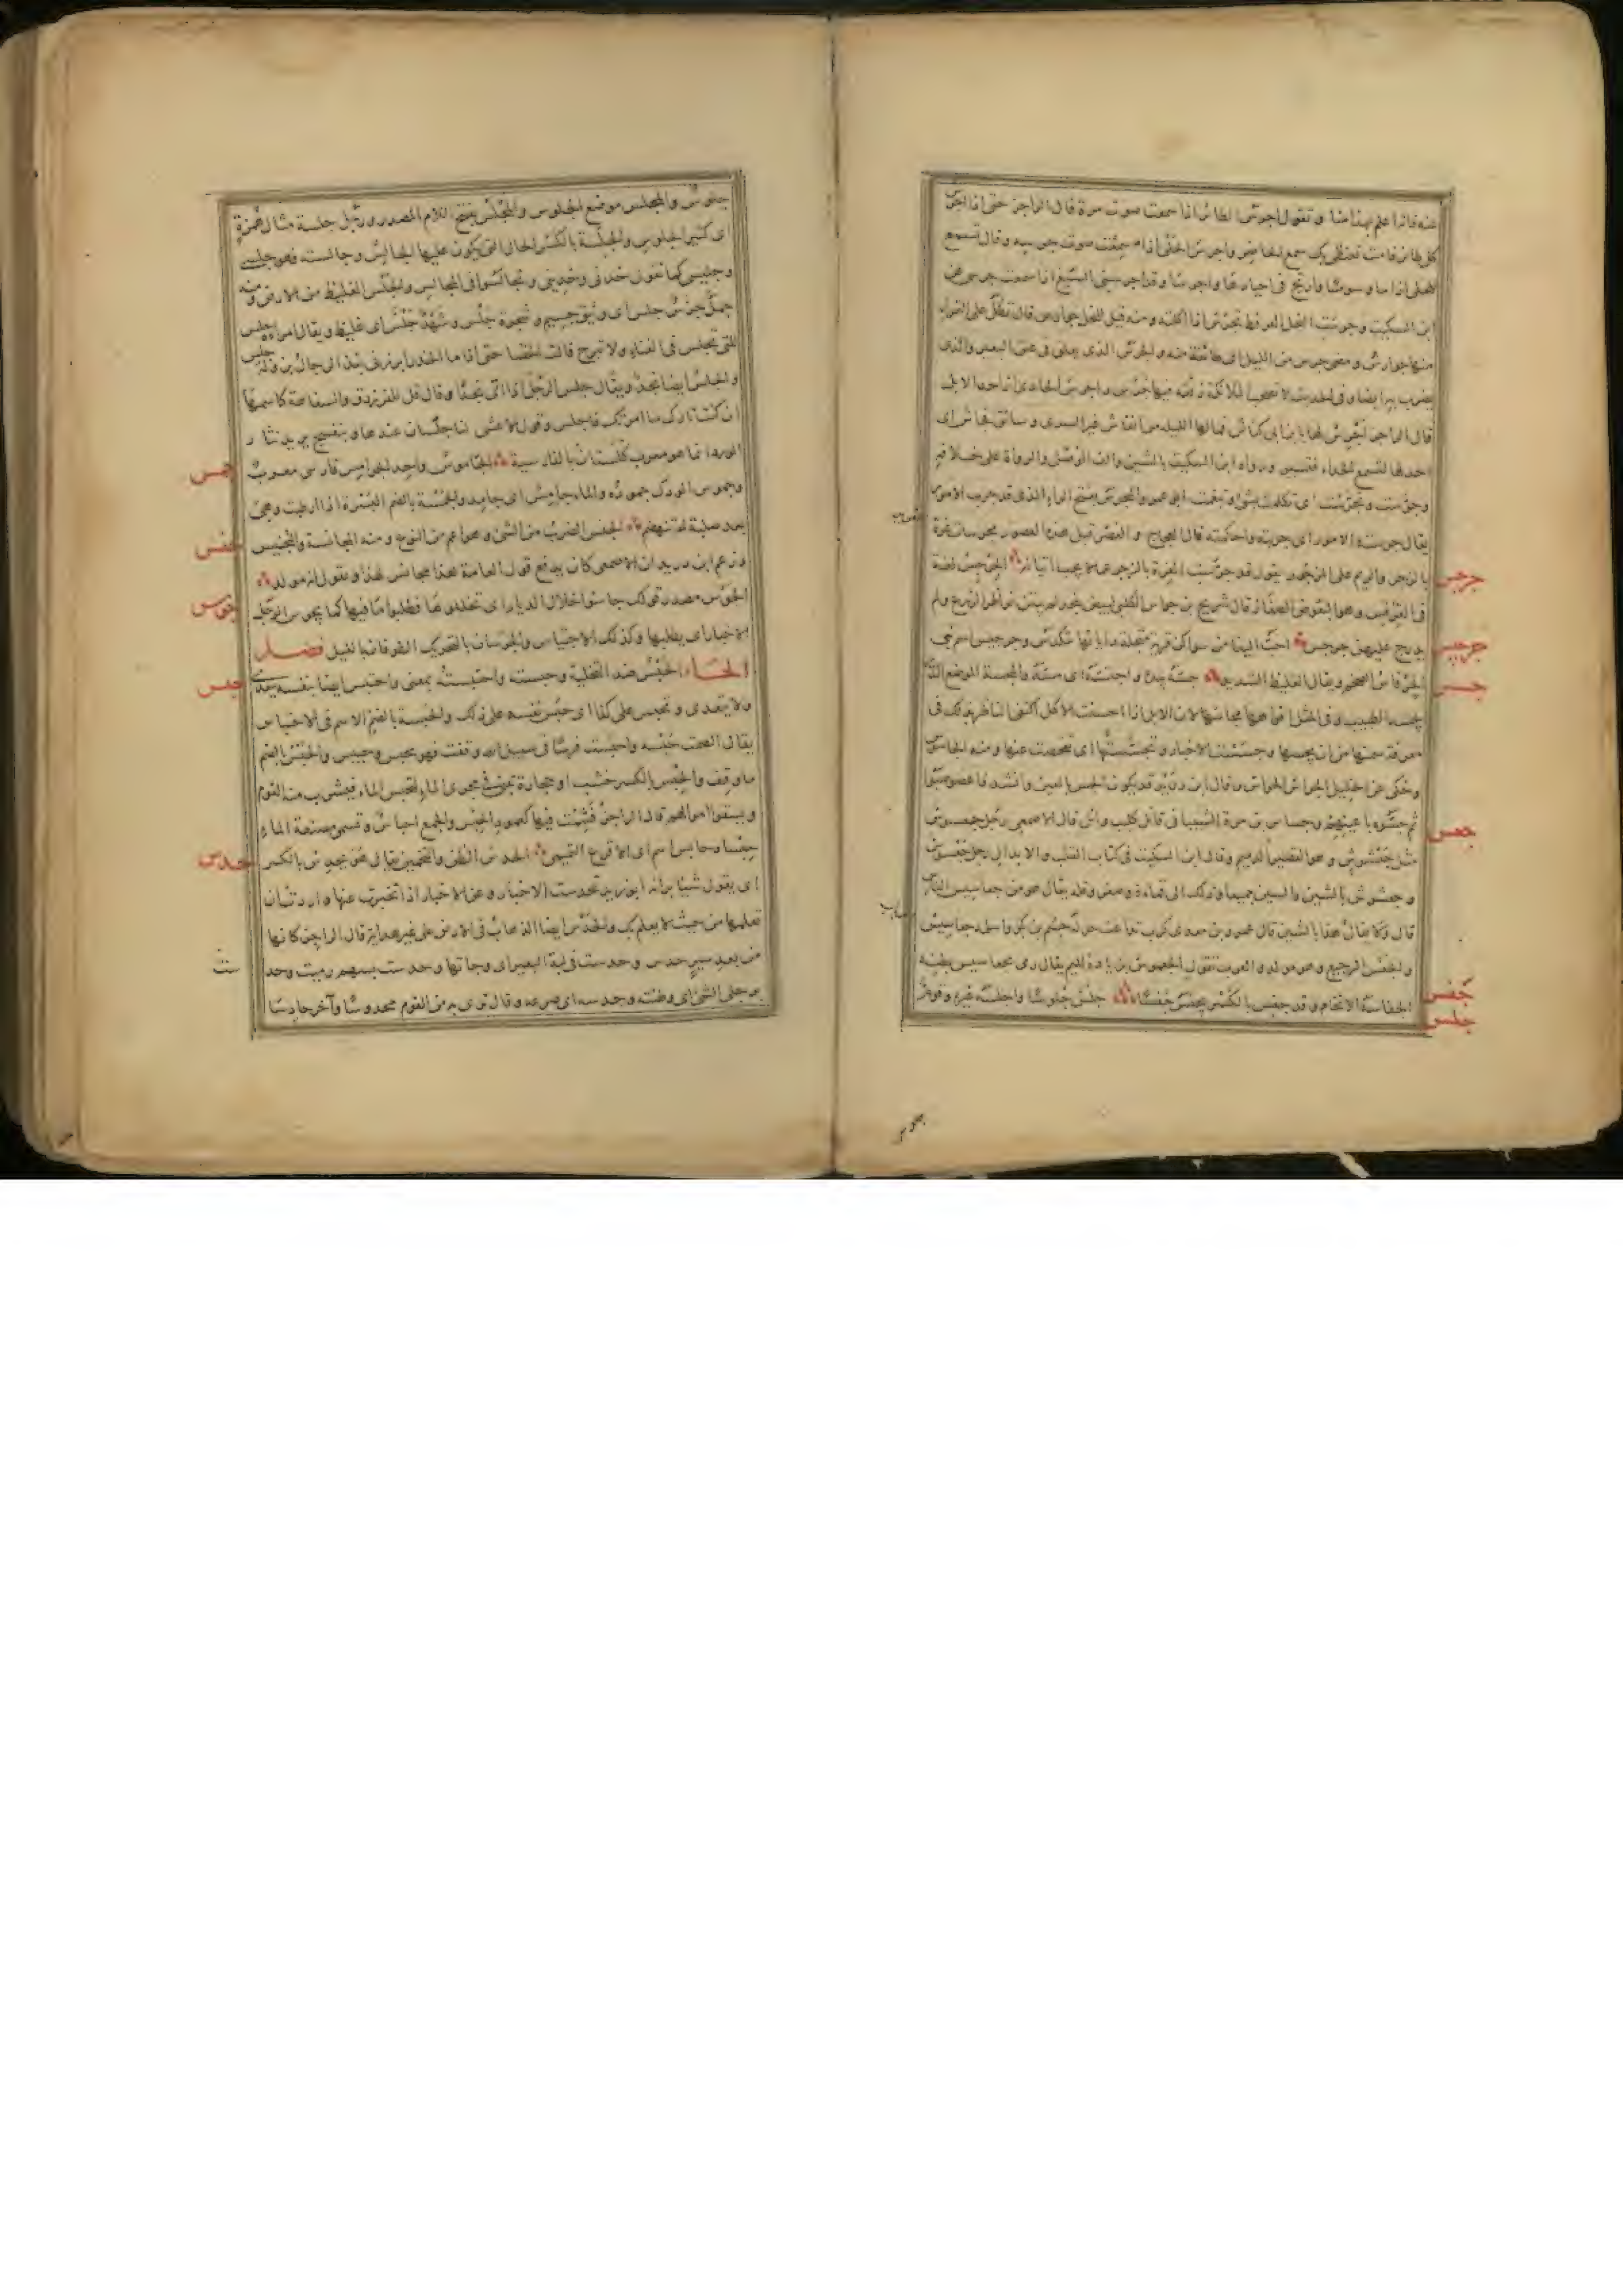 كل طائر قامت تعنظى بك سمع الحاضر واجرس الحلى اذا سمعت صوت جرسه وقال تسمع
للحلى اذا ما وسوسا وارتج فى اجيادها واجرسا وقد اجرسنى السبع اذا سمعت جرسى عن
ابن السكيت وجرست النحل العرفط تجرس اذا اكلته ومنه قيل للنحل جوارس قال تظل على الثمراء
منها جوارس ومضى جرس من الليل اى طائفة منه والجرس الذى يعلق فى عنق البعير والذى
يضرب به ايضا وفى الحديث لا تصحب الملائكة رفقة فيها جرس واجرس الحادى اذا حدا للابل
قال الراجز اجرس لها يا ابن ابى كباش فما لها الليلة من انفاش غير السرى وسائق نجاش اى
احد لها لتسمع الحداء فتسير ورواه ابن السكيت بالشين والف الوصل والرواة على خلافه
وجرست وتجرست اى تكلمت بشئ وتنغمت ابى عمرو والمجرس بفتح الراء الذى قد جرب الامور
يقال جرسته الامور اى جربته واحكمته قال العجاج والعصر قبل هذه العصور مجرسات غرة
جرجس
فى القرقس وهو البعوض الصغار قال شريح بن جواس الكلبى لبيض بنجد لم يبتن نواطرا لزرع ولم
جرجيس
يدرج عليهن جرجس احب الينا من سواكن قرية مثجلة داياتها تتكدس وجرجيس اسم نبى
جسس
يجسه الطبيب وفى المثل افواهها مجاسها لان الابل اذا احسنت الاكل اكتفى الناظر بذلك فى
معرفة سمنها من ان يجسها وجسست الاخبار وتجسستها اى تفحصت عنها ومنه الجاسوس
وحكى عن الخليل الجواس الحواس وقال ابن دريد قد يكون الجس بالعين وانشد فاعصوصبوا
ثم جسوه باعينهم وجساس بن مرة الشيبانى قاتل كليب وائل قال الاصمعى رجل جعسوس
جعس
مثل جعشوش وهو القصير الدميم وقال ابن السكيت فى كتاب القلب والابدال رجل جعسوس
وجعشوش بالشين والسين جميعا وذلك الى قماءة وصغر وقلة يقال هو من جعاسيس الناس
قال ولا يقال هذا بالشين قال عمرو بن معدى كرب تداعت حوله جشم بن بكر واسلمه جعاسيس
والجعس الرجيع وهو مولد والعرب تقول الجعموس بزيادة الميم يقال رمى بجعاميس بطنه
جفس
الجفاسة الاتخام وقد جفس بالكسر يجفس جفسا جلس جلوسا واجلسه غيره وقوم
جلس
جلوس والمجلس موضع الجلوس والمجلس بفتح اللام المصدر ورجل جلسة مثال همزة
اى كثير الجلوس والجلسة بالكسر الحال التى يكون عليها الجالس وجالسته فهو جلسى
وجليسى كما تقول خدنى وخدينى وتجالسوا فى المجالس والجلس الغليظ من الارض ومنه
جمل جلس اى وثيق جسيم وشجرة جلس وشهد جلس اى غليظ ويقال امراة جلس
والجلس ايضا نجد ويقال جلس الرجل اى اتى نجدا وقال قل للفرزدق والسفاهة كاسمها
ان كنت تارك ما امرتك فاجلس وقول الاعشى لنا جلسان عندها وبنفسج يريد نثار
الورد انما هو معرب كلستان بالفارسية الجاموس واحد الجواميس فارسى معرب
جمس
وجموس الودك جموده والماء جامس اى جامد والجمسة بالضم البسرة اذا ارطبت وهى
بعد صلبة لم تنهضم الجنس الضرب من الشئ وهو اعم من النوع ومنه المجانسة والتجنيس
جنس
وزعم ابن دريد ان الاصمعى كان يدفع قول العامة هذا مجانس لهذا ويقول انه مولد
الجوس مصدر قولك جاسوا خلال الديار اى تخللوها فطلبوا ما فيها كما يجوس الرجل
جوس
الاخبار اى يطلبها وكذلك الاجتياس والجوسان بالتحريك الطوفان بالليل فصل
الحاء الحبس ضد التخلية وحبسته واحتبسته بمعنى واحتبس ايضا بنفسه يتعدى
حبس
ولا يتعدى وتحبس على كذا اى حبس نفسه على ذلك والحبسة بالضم الاسم من الاحتباس
يقال الصمت حبسة واحبست فرسا فى سبيل الله وقفت فهو محبس وحبيس والحبس بالضم
ما وقف والحبس بالكسر خشب او حجارة تبنى فى مجرى الماء لتحبس الماء فيشرب منه القوم
ويسقوا اموالهم قال الراجز فشمت فيها كعمود الحبس والجمع احباس وتسمى مصنعة الماء
حبسا وحابس اسم ابى الاقرع التميمى الحدس الظن والتخمين يقال هو يحدس بالكسر
حدس
اى يقول شيئا برايه ابو زيد تحدست الاخبار وعن الاخبار اذا تخبرت عنها واردت ان
تعلمها من حيث لا يعلم بك والحدس ايضا الذهاب فى الارض على غير هداية قال الراجز كانها
من بعد سير حدس وحدست فى لبة البعير اى وجاتها وحدست بسهم رميت وحد
ست
برجلى الشئ اى وطئته وحدسه اى صرعه وقال ترى به من القوم محدوسا وآخر حادسا